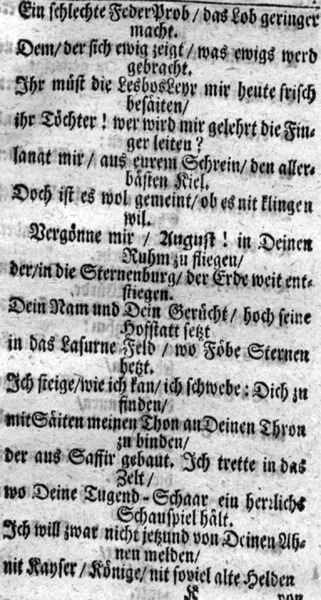 Ein schlechte FederProb / das Lob geringer
macht.
Dem / der sich ewig zeigt / was ewigs werd
gebracht.
Ihr müst die LesbosLeyr mir heute frisch
besäiten /
ihr Töchter! wer wird mir gelehrt die Fin-
ger leiten?
langt mir / aus eurem Schrein / den aller-
bästen Kiel.
Doch ist es wol gemeint / ob es nit klingen
wil.
Vergönne mir / August! in Deinen
Ruhm zu fliegen /
der / in die Sternenburg / der Erde weit ent-
stiegen.
Dein Nam und Dein Gerücht / hoch seine
Hofstatt setzt
in das Lasurne Feld / wo Föbe Sternen
hetzt.
Ich steige / wie ich kan / ich schwebe: Dich zu
finden /
mit Säiten meinen Thon an Deinen Thron
zu binden /
der aus Saffir gebaut. Ich trette in das
Zelt /
wo Deine Tugend-Schaar ein herrlichs
Schauspiel hält.
Ich will zwar nicht jetzund von Deinen Ah-
nen melden /
nit Kayser / Könige / nit soviel alte Helden
K von